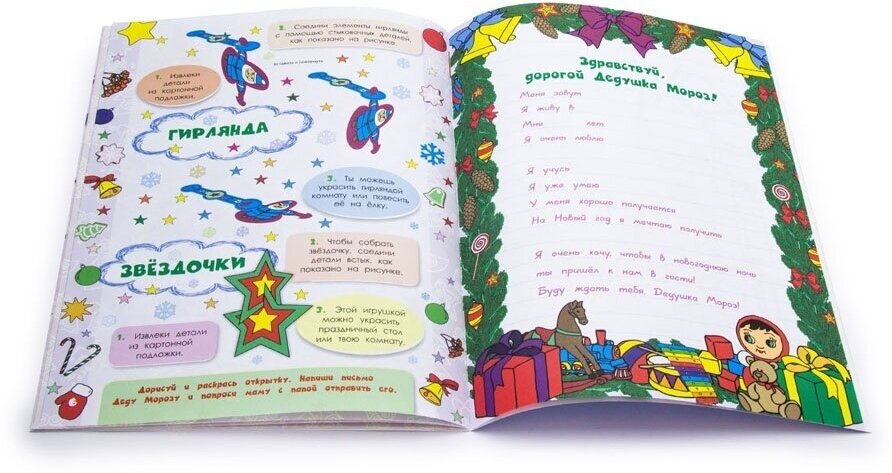 2. Соедини элементы гирлянды
с помощью стыковочных деталей,
как показано на рисунке.
вставить и повернуть
1. Извлеки
детали
из картонной
подложки.
ГИРЛЯНДА
3. Ты можешь
украсить гирляндой
комнату или повесить
её на ёлку.
ЗВЁЗДОЧКИ
2. Чтобы собрать
звёздочку, соедини
детали встык, как
показано на рисунке.
3. Этой игрушкой
можно украсить
праздничный стол
или твою комнату.
1. Извлеки детали
из картонной
подложки.
Дорисуй и раскрась открытку. Напиши письмо
Деду Морозу и попроси маму с папой отправить его.
Здравствуй,
дорогой Дедушка Мороз!
Меня зовут
Я живу в
Мне лет
Я очень люблю
Я учусь
Я уже умею
У меня хорошо получается
На Новый год я мечтаю получить
Я очень хочу, чтобы в новогоднюю ночь
ты пришёл к нам в гости!
Буду ждать тебя, Дедушка Мороз!